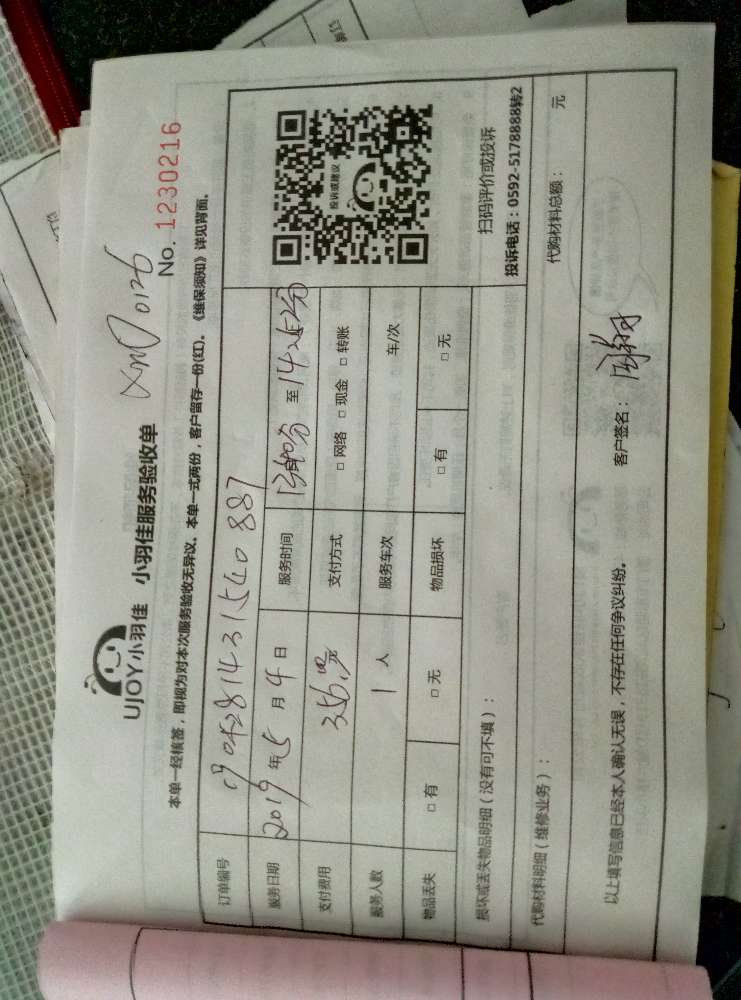 UJOY小羽佳 小羽佳服务验收单
XMD0126
No. 1230216
本单一经核签，即视为对本次服务验收无异议。本单一式两份，客户留存一份(红)。《维保须知》详见背面。
订单编号
服务日期 2019年5月4日 服务时间 至
支付费用 支付方式 □ 网络 □ 现金 □ 转账
服务人数 1 人 服务车次 车/次
物品丢失 □ 有 □ 无 物品损坏 □ 有 □ 无
投诉或建议
扫码评价或投诉
投诉电话：0592-5178888转2
损坏或丢失物品明细（没有可不填）：
代购材料明细（维修业务）： 代购材料总额： 元
以上填写信息已经本人确认无误，不存在任何争议纠纷。 客户签名：